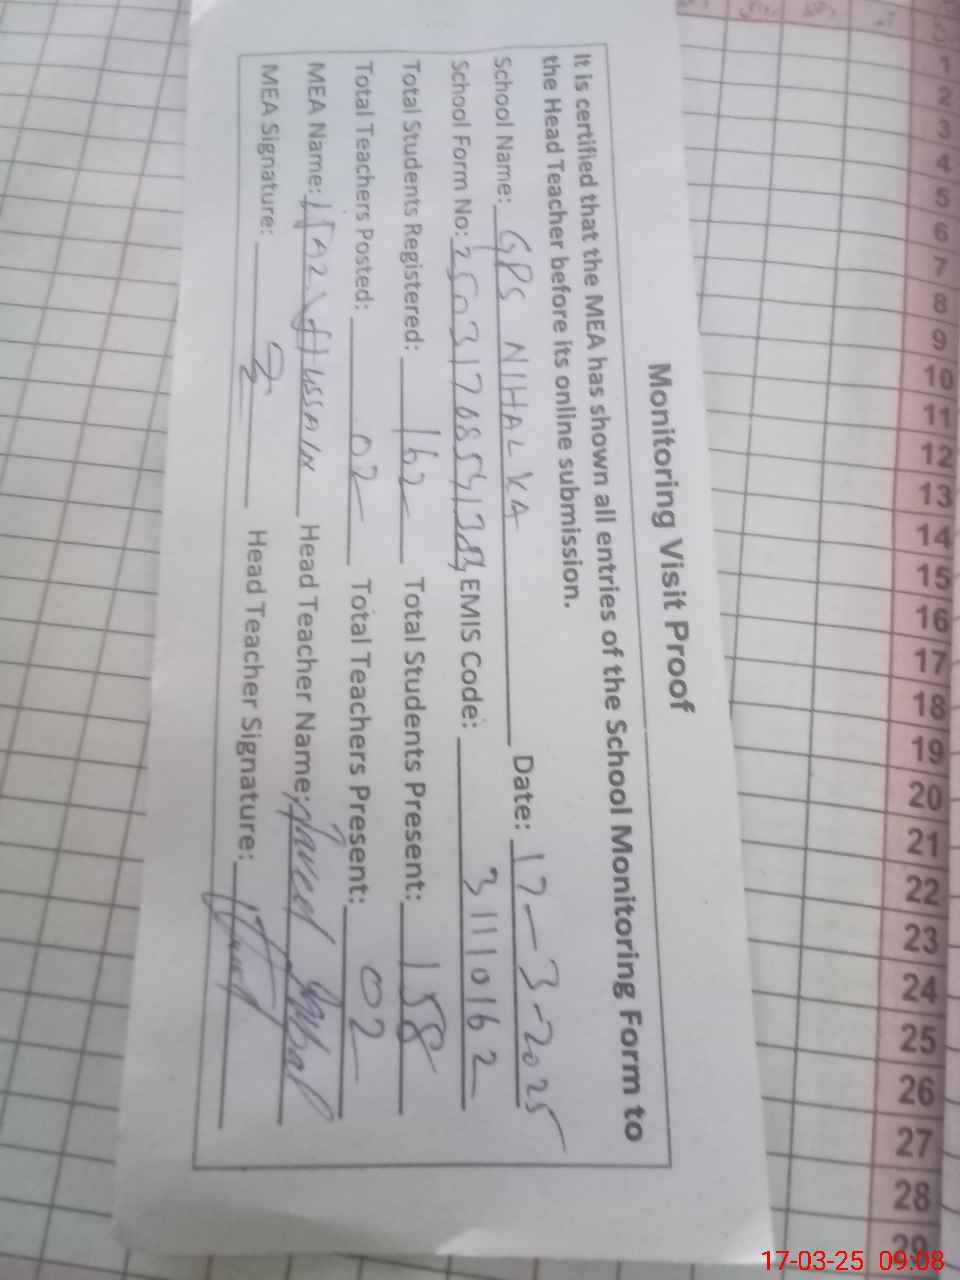 Monitoring Visit Proof
It is certified that the MEA has shown all entries of the School Monitoring Form to
the Head Teacher before its online submission.
School Name: GPS NIHALKA Date: 17-3-2025
School Form No: EMIS Code: 31110162
Total Students Registered: 162 Total Students Present: 158
Total Teachers Posted: 02 Total Teachers Present: 02
MEA Name: HUSSAIN Head Teacher Name: Javed Iqbal
MEA Signature: Head Teacher Signature:
1
2
3
4
5
6
7
8
9
10
11
12
13
14
15
16
17
18
19
20
21
22
23
24
25
26
27
28
29
17-03-25 09:08